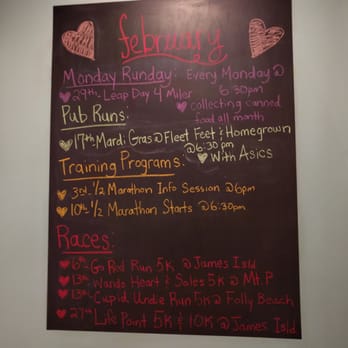 february
Monday Runday: Every Monday @ 6:30pm
29th- Leap Day 4 Miler
collecting canned food all month
Pub Runs:
17th- Mardi Gras @ Fleet Feet & Homegrown @ 6:30 pm
With Asics
Training Programs:
3rd- 1/2 Marathon Info Session @ 6pm
10th- 1/2 Marathon Starts @ 6:30pm
Races:
6th- Go Red Run 5K @ James Isld
13th- Wando Heart & Soles 5K @ Mt. P
13th- Cupid Undie Run 5K @ Folly Beach
27th Life Point 5K & 10K @ James Isld